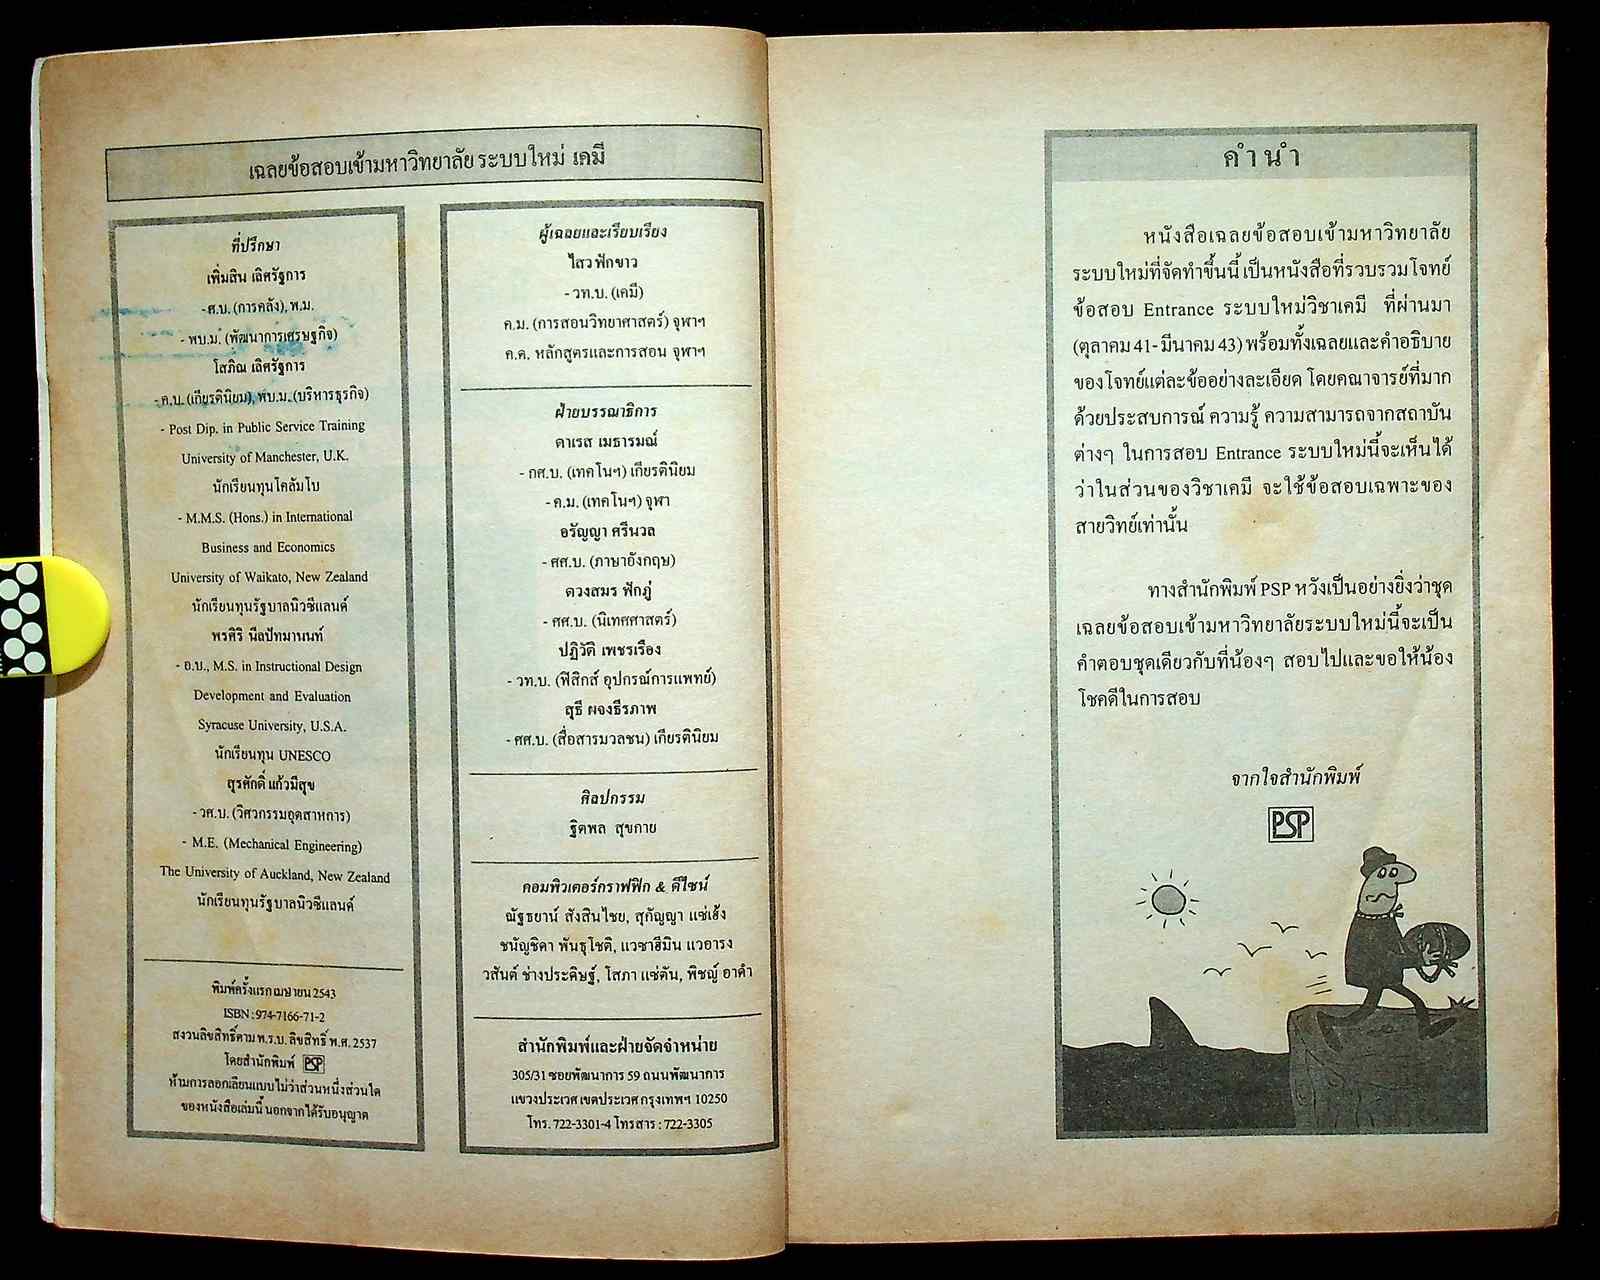 เฉลยข้อสอบเข้ามหาวิทยาลัย ระบบใหม่ เคมี
ที่ปรึกษา
เพิ่มสิน เลิศรัฐการ
-ศ.บ. (การคลัง), พ.ม.
- พบ.ม. (พัฒนาการเศรษฐกิจ)
โสภิณ เลิศรัฐการ
- ค.บ. (เกียรตินิยม), พบ.ม. (บริหารธุรกิจ)
- Post Dip. in Public Service Training
University of Manchester, U.K.
นักเรียนทุนโคลัมโบ
- M.M.S. (Hons.) in International
Business and Economics
University of Waikato, New Zealand
นักเรียนทุนรัฐบาลนิวซีแลนด์
พรศิริ นีลปัทมานนท์
- อ.บ., M.S. in Instructional Design
Development and Evaluation
Syracuse University, U.S.A.
นักเรียนทุน UNESCO
สุรศักดิ์ แก้วมีสุข
- วศ.บ. (วิศวกรรมอุตสาหการ)
- M.E. (Mechanical Engineering)
The University of Auckland, New Zealand
นักเรียนทุนรัฐบาลนิวซีแลนด์
พิมพ์ครั้งแรก เมษายน 2543
ISBN : 974-7166-71-2
สงวนลิขสิทธิ์ตาม พ.ร.บ. ลิขสิทธิ์ พ.ศ. 2537
โดยสำนักพิมพ์ PSP
ห้ามการลอกเลียนแบบไม่ว่าส่วนหนึ่งส่วนใด
ของหนังสือเล่มนี้ นอกจากได้รับอนุญาต
ผู้เฉลยและเรียบเรียง
ไสว ฟักขาว
- วท.บ. (เคมี)
ค.ม. (การสอนวิทยาศาสตร์) จุฬาฯ
ค.ด. หลักสูตรและการสอน จุฬาฯ
ฝ่ายบรรณาธิการ
ดาเรส เมธารมณ์
- กศ.บ. (เทคโนฯ) เกียรตินิยม
- ค.ม. (เทคโนฯ) จุฬา
อรัญญา ศรีนวล
- ศศ.บ. (ภาษาอังกฤษ)
ดวงสมร ฟักภู่
- ศศ.บ. (นิเทศศาสตร์)
ปฏิวัติ เพชรเรือง
- วท.บ. (ฟิสิกส์ อุปกรณ์การแพทย์)
สุธี ผจงธีรภาพ
- ศศ.บ. (สื่อสารมวลชน) เกียรตินิยม
ศิลปกรรม
ฐิตพล สุขกาย
คอมพิวเตอร์กราฟฟิก & ดีไซน์
ณัฐธยาน์ สังสินไชย, สุกัญญา แซ่เฮ้ง
ชนัญชิดา พันธุโชติ, แวซาฮีมิน แวอารง
วสันต์ ช่างประดิษฐ์, โสภา แซ่ตัน, พิชญ์ อาดำ
สำนักพิมพ์และฝ่ายจัดจำหน่าย
305/31 ซอยพัฒนาการ 59 ถนนพัฒนาการ
แขวงประเวศ เขตประเวศ กรุงเทพฯ 10250
โทร. 722-3301-4 โทรสาร : 722-3305
คำนำ
หนังสือเฉลยข้อสอบเข้ามหาวิทยาลัย
ระบบใหม่ที่จัดทำขึ้นนี้ เป็นหนังสือที่รวบรวมโจทย์
ข้อสอบ Entrance ระบบใหม่วิชาเคมี ที่ผ่านมา
(ตุลาคม 41- มีนาคม 43) พร้อมทั้งเฉลยและคำอธิบาย
ของโจทย์แต่ละข้ออย่างละเอียด โดยคณาจารย์ที่มาก
ด้วยประสบการณ์ ความรู้ ความสามารถจากสถาบัน
ต่างๆ ในการสอบ Entrance ระบบใหม่นี้จะเห็นได้
ว่าในส่วนของวิชาเคมี จะใช้ข้อสอบเฉพาะของ
สายวิทย์เท่านั้น
ทางสำนักพิมพ์ PSP หวังเป็นอย่างยิ่งว่าชุด
เฉลยข้อสอบเข้ามหาวิทยาลัยระบบใหม่นี้จะเป็น
คำตอบชุดเดียวกับที่น้องๆ สอบไปและขอให้น้อง
โชคดีในการสอบ
จากใจสำนักพิมพ์
PSP